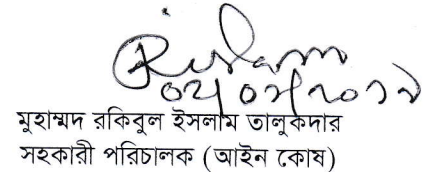 ০২/০২/২০১৯
মুহাম্মদ রকিবুল ইসলাম তালুকদার
সহকারী পরিচালক (আইন কোষ)